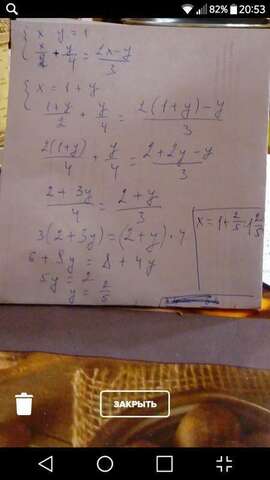 82% 20:53
x y = 1
x/2 + y/4 = (2x-y)/3
x = 1 + y
(1+y)/2 + y/4 = (2(1+y)-y)/3
2(1+y)/4 + y/4 = (2+2y-y)/3
(2+3y)/4 = (2+y)/3
3(2+3y) = (2+y)·4
6 + 9y = 8 + 4y
5y = 2
y = 2/5
x = 1 + 2/5 = 1 2/5
ЗАКРЫТЬ